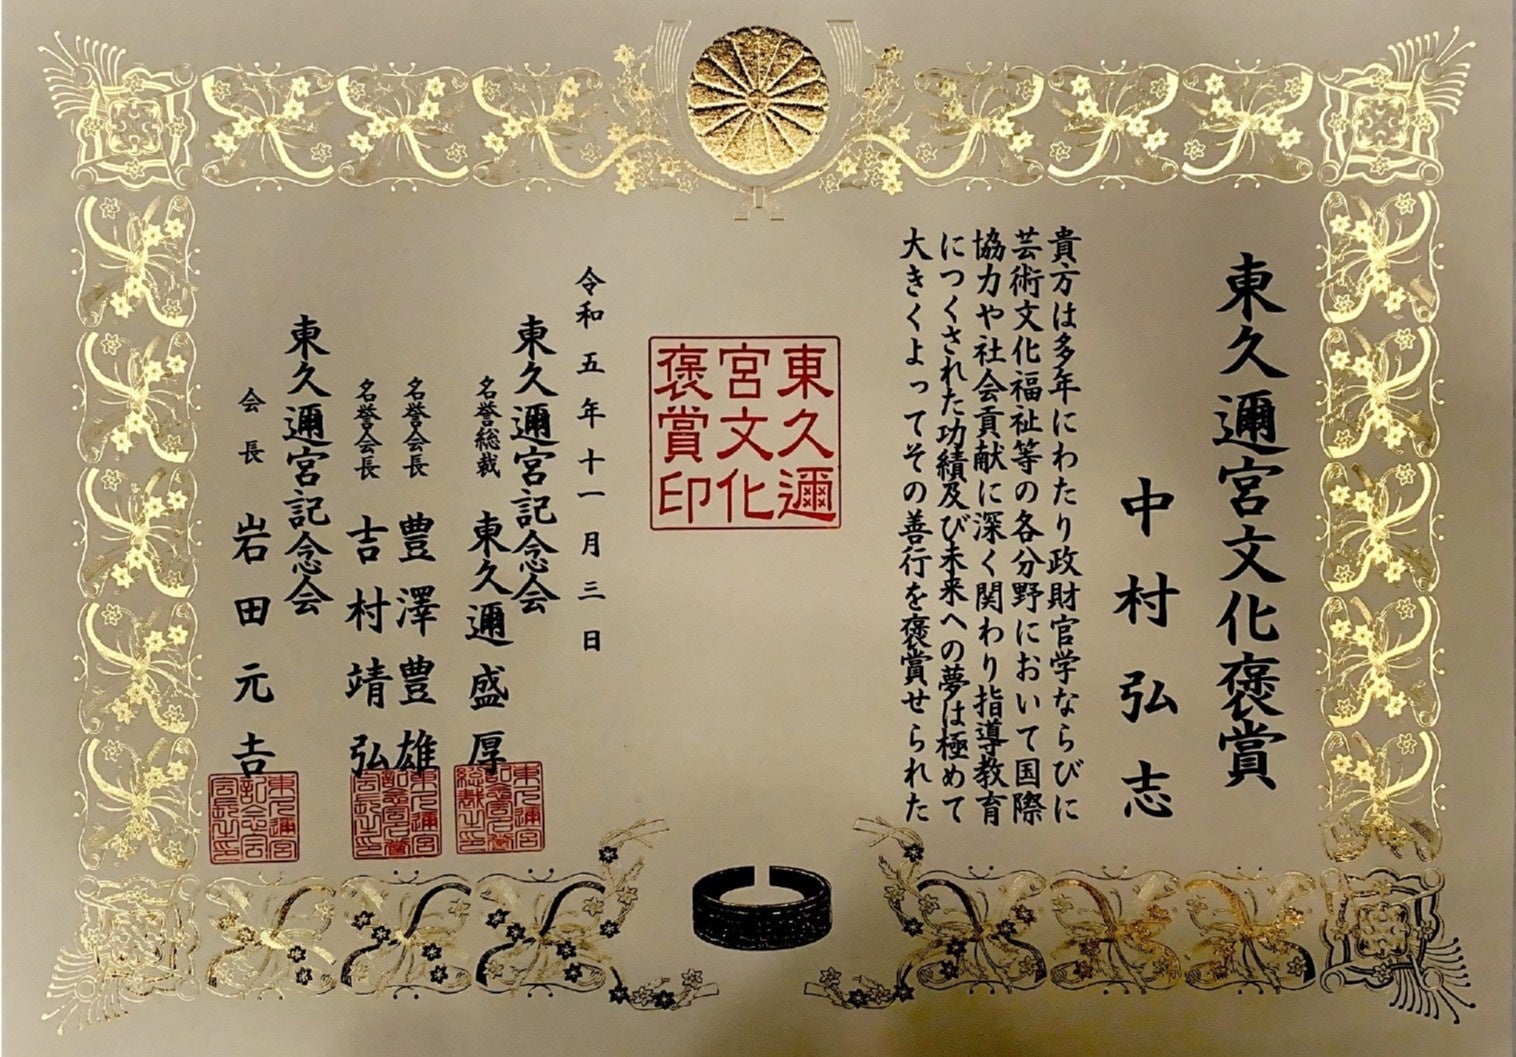 東久邇宮文化褒賞
中村弘志
貴方は多年にわたり政財官学ならびに
芸術文化福祉等の各分野において国際
協力や社会貢献に深く関わり指導教育
につくされた功績及び未来への夢は極めて
大きくよってその善行を褒賞せられた
東久邇
宮文化
褒賞印
令和五年十一月三日
東久邇宮記念会
名誉総裁 東久邇盛厚
名誉会長 豊澤豊雄
名誉会長 吉村靖弘
東久邇宮記念会
会長 岩田元吉